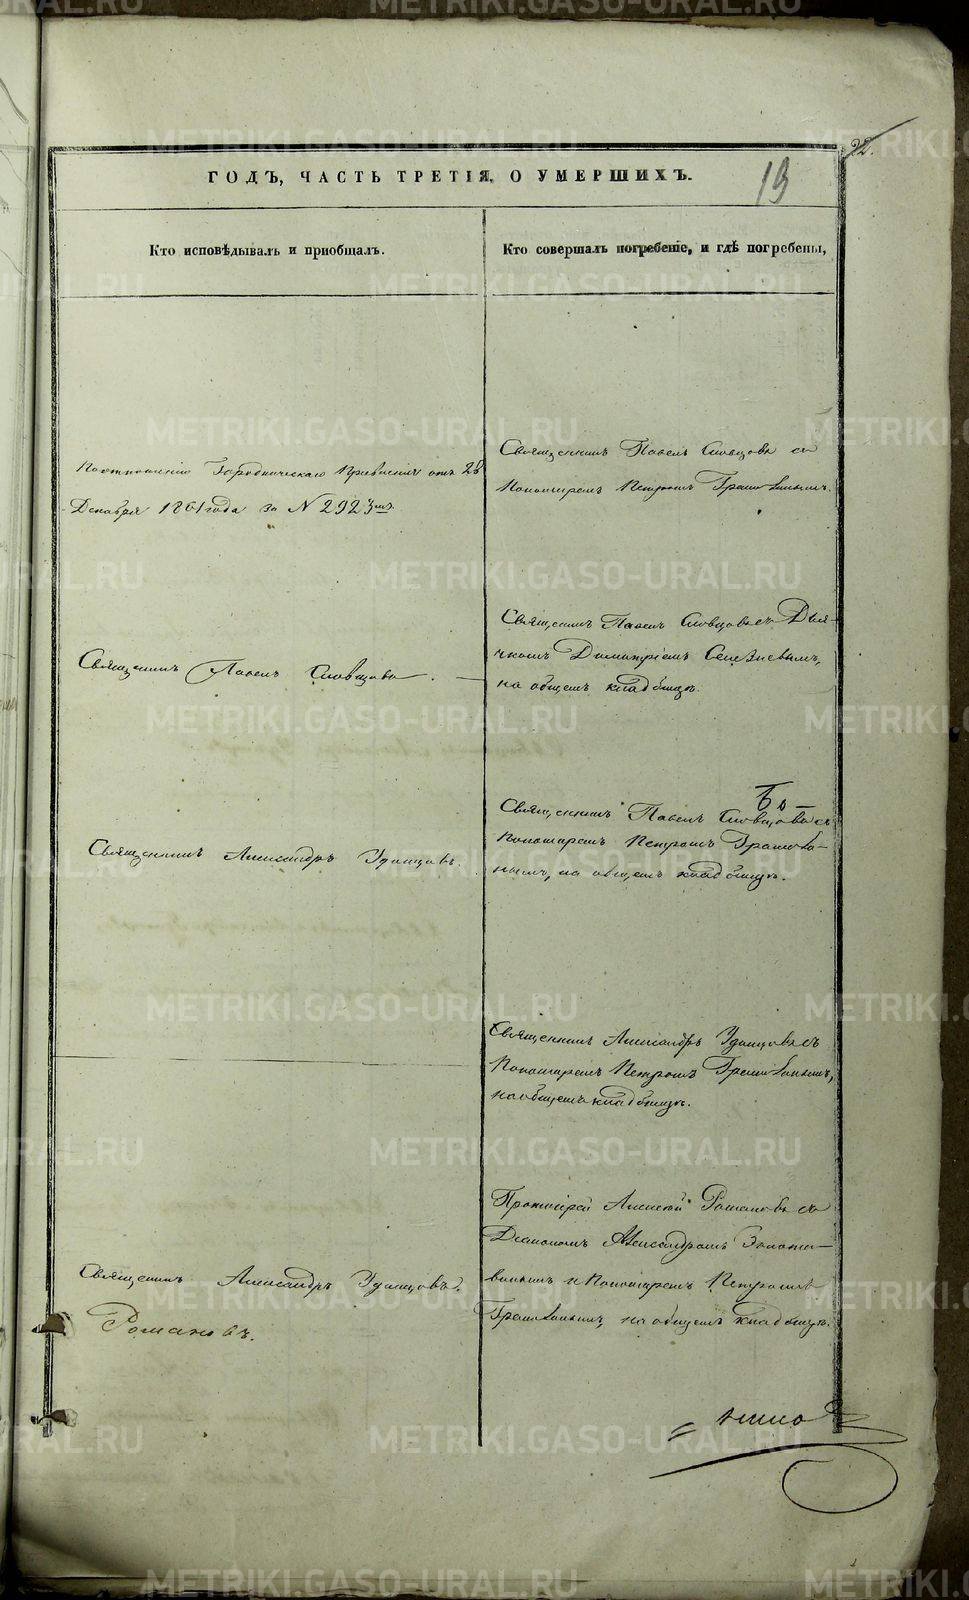 METRIKI.GASO-URAL.RU
22.
19
ГОДЪ, ЧАСТЬ ТРЕТІЯ, О УМЕРШИХЪ.
Кто исповѣдывалъ и пріобщалъ.
Кто совершалъ погребеніе, и гдѣ погребены,
Священникъ Павелъ Словцовъ съ
Пономаремъ Петромъ
По отношенію Городническаго Правленія отъ 28
Декабря 1861 года за № 2923мъ.
Священникъ Павелъ Словцовъ съ Дья-
чкомъ Димитріемъ
на общемъ кладбищѣ.
Священникъ Павелъ Словцовъ.
Священникъ Павелъ Словцовъ съ
Пономаремъ Петромъ
нымъ, на общемъ кладбищѣ.
Священникъ Александръ Удинцовъ.
Священникъ Александръ Удинцовъ съ
Пономаремъ Петромъ
на общемъ кладбищѣ.
Протоіерей Алексѣй Романовъ съ
Діакономъ Александромъ
и Пономаремъ Петромъ
на общемъ кладбищѣ.
Священникъ Александръ Удинцовъ.
Романовъ.